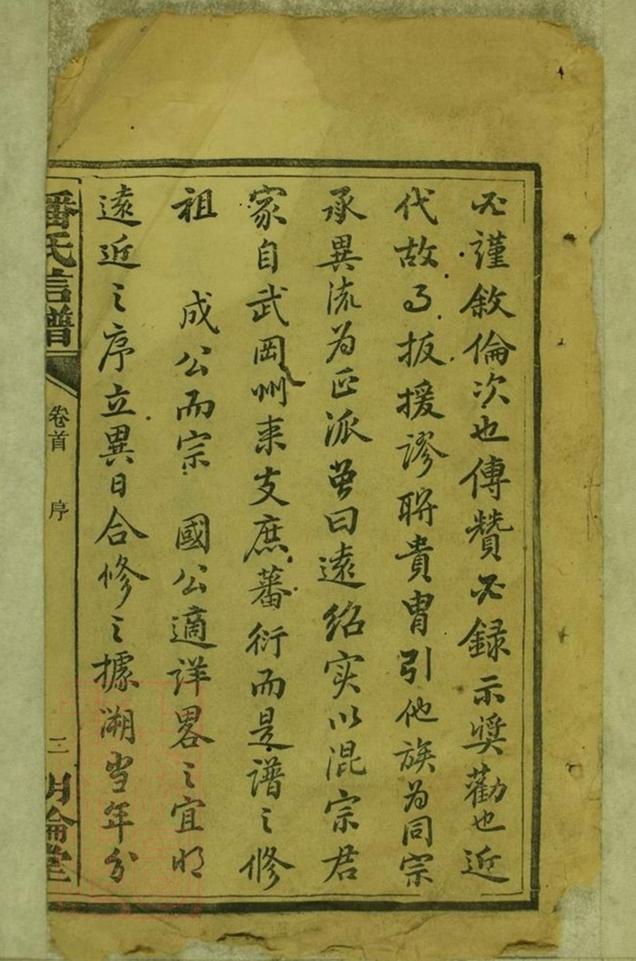 必謹敘倫次也傳贊必録示奨勸也近
代故习扳援謬聨貴胄引他族為同宗
承異流為正派曾曰遠紹实以混宗君
家自武岡州来支庶蕃衍而是譜之修
祖 成公而宗 國公適詳畧之宜明
遠近之序立異日合修之據溯当年分
潘氏信譜
卷首 序
三
明倫堂